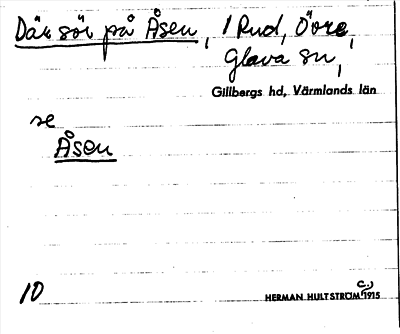 Där sör på Åsen, / Rud, Övre,
Glava sn,
Gillbergs hd, Värmlands län
se
Åsen
10
HERMAN HULTSTRÖM c.) 1915